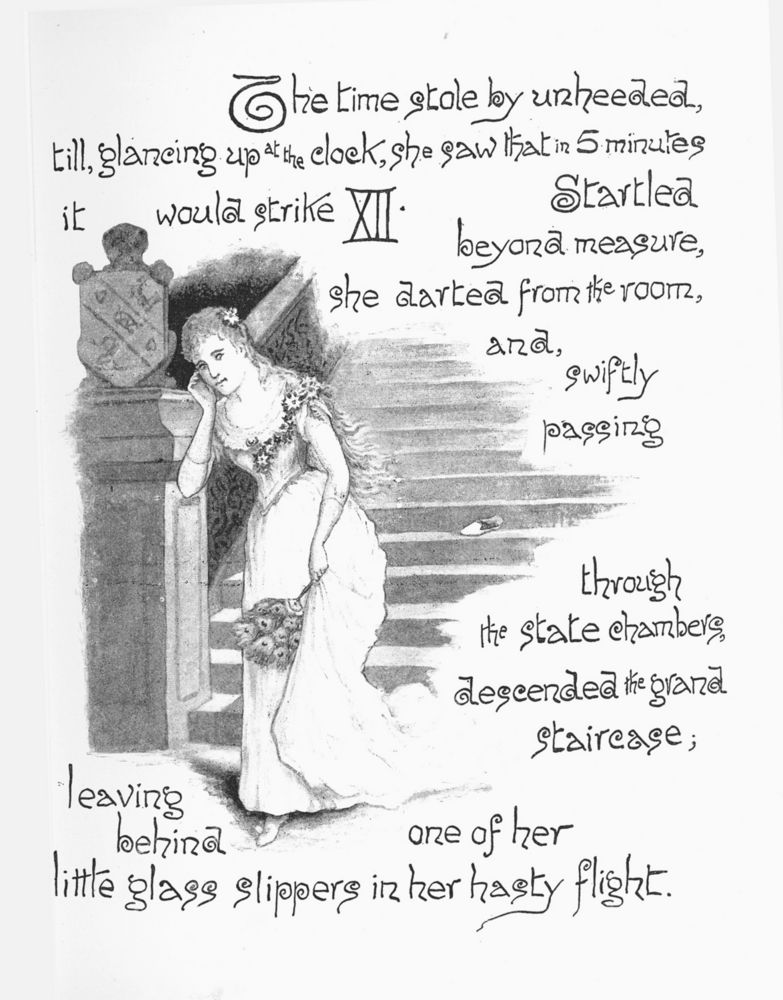 The time stole by unheeded,
till, glancing up at the clock, she saw that in 5 minutes
it would strike XII. Startled
beyond measure,
she darted from the room,
and,
swiftly
passing
through
the state chambers,
descended the grand
staircase;
leaving
behind one of her
little glass slippers in her hasty flight.